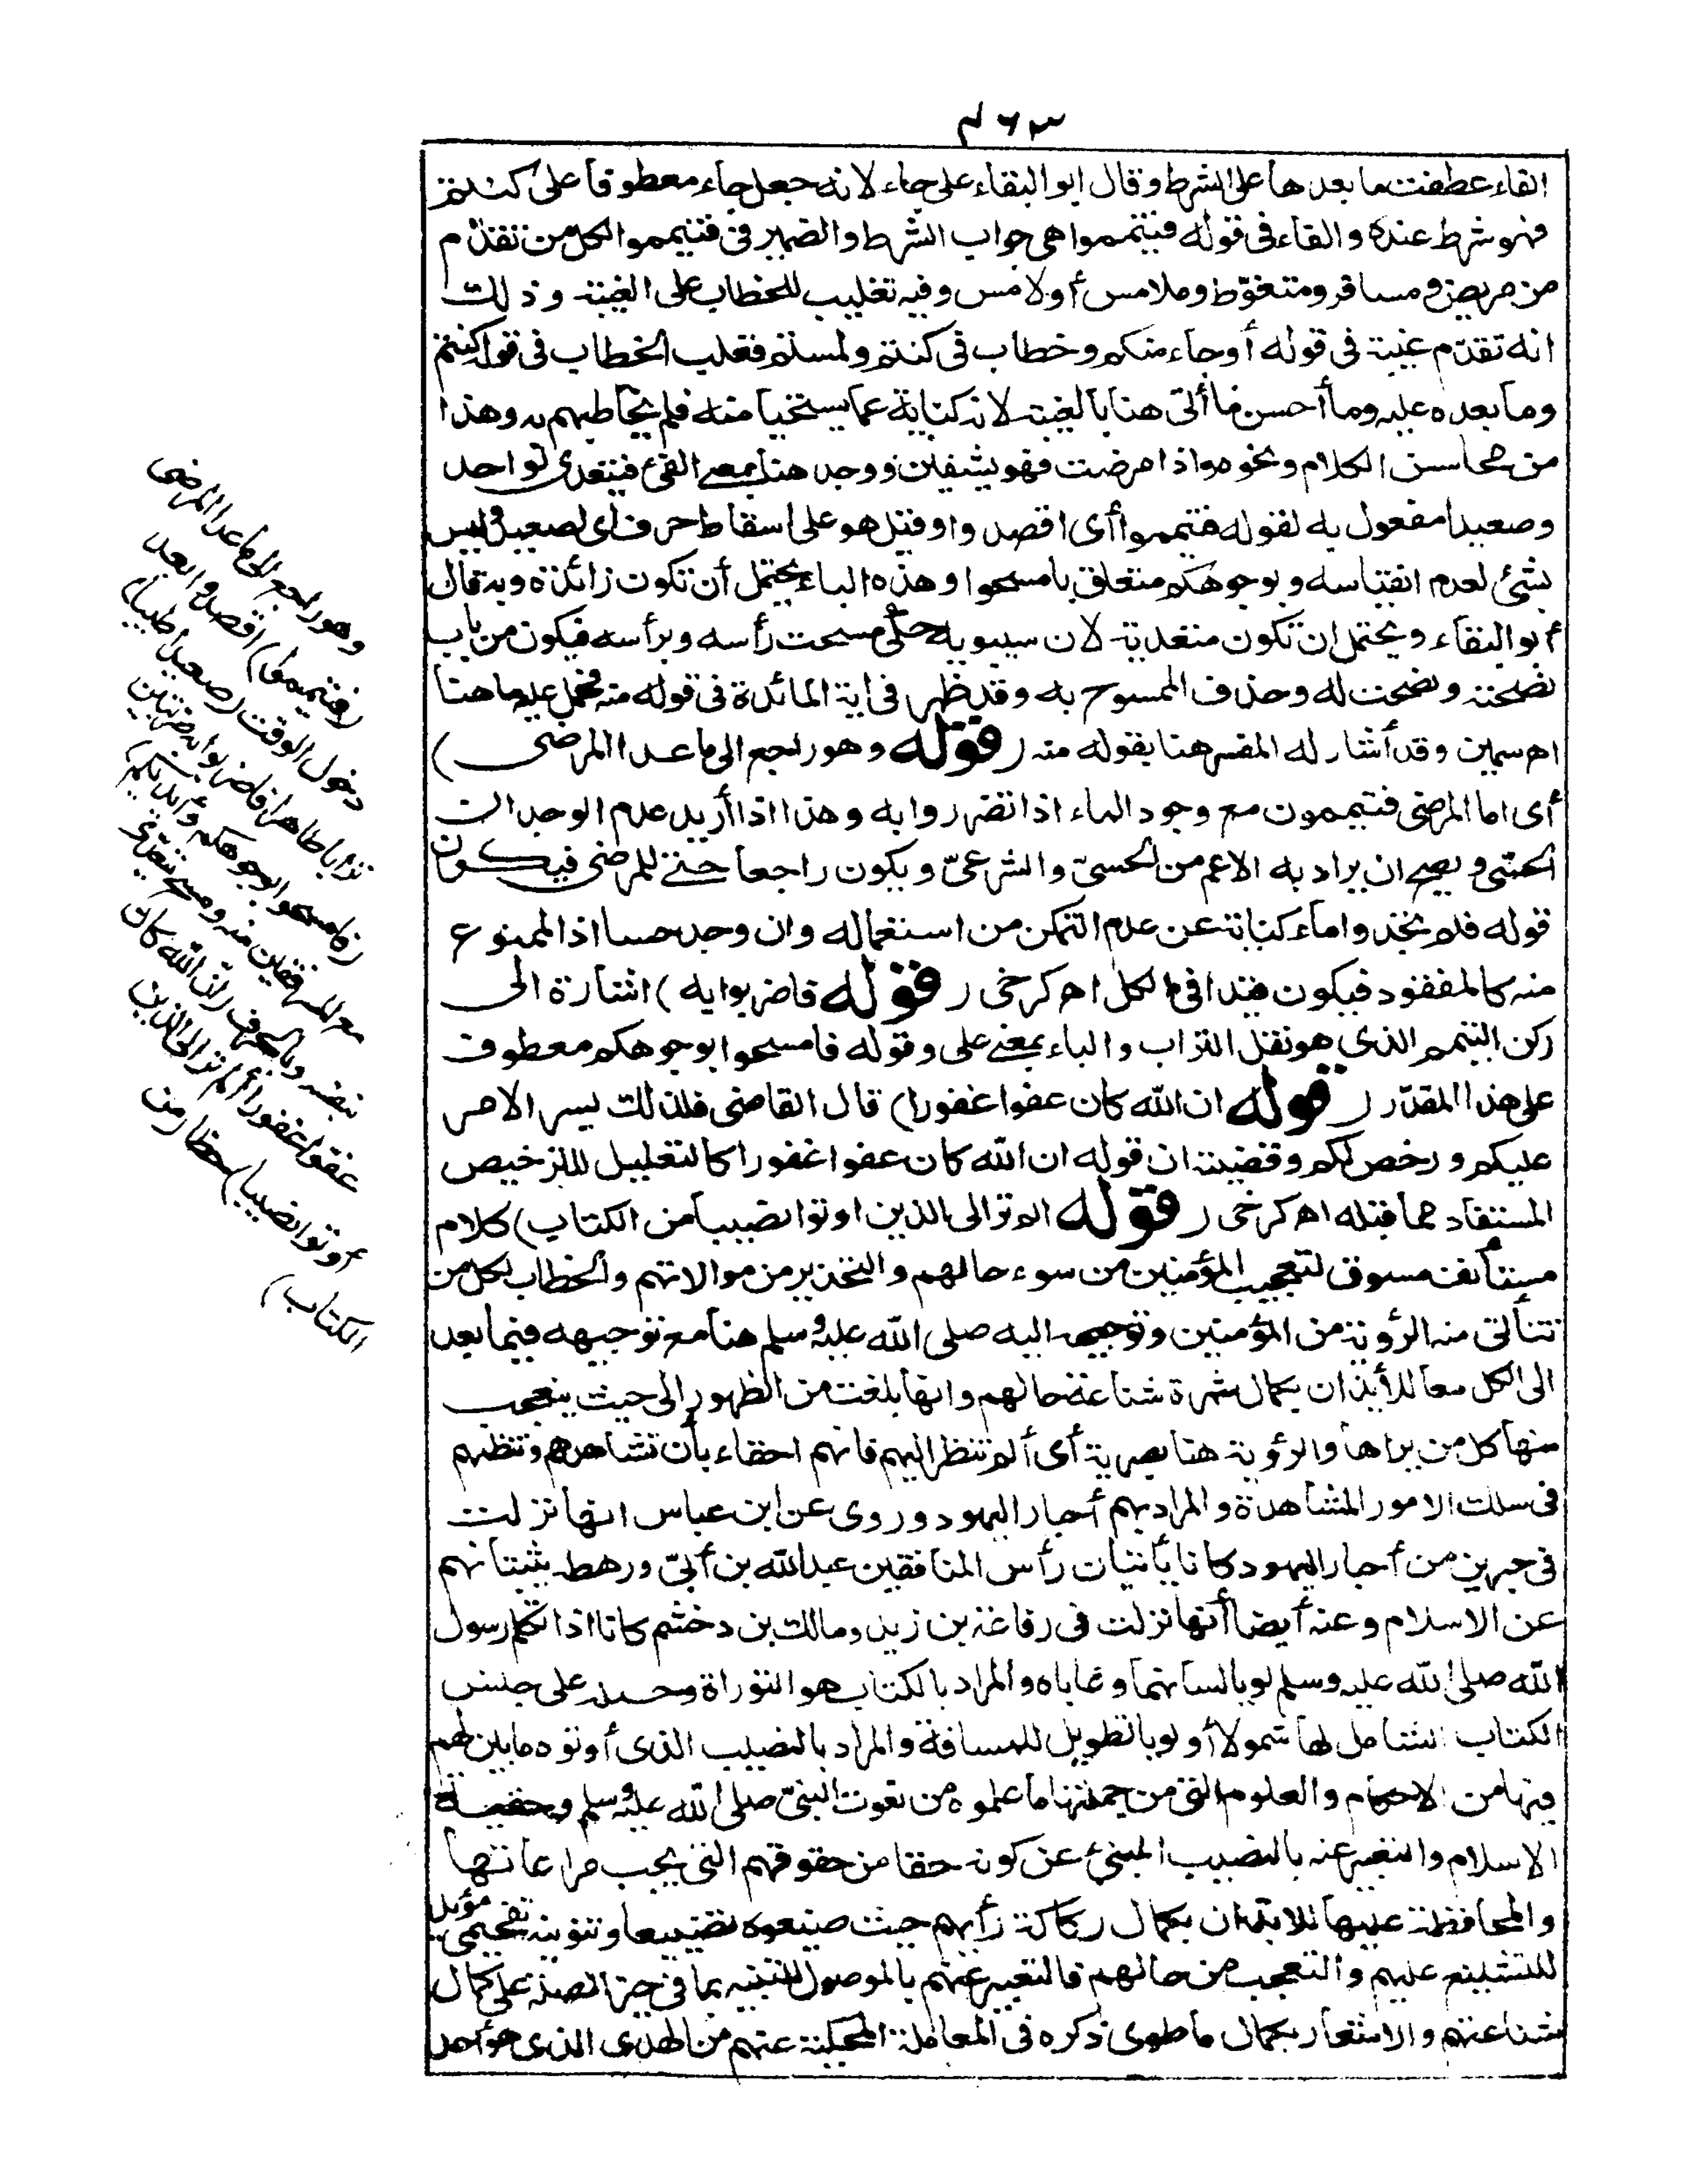 ٤٦٣
الفاء عطفت ما بعدها على الشرط وقال ابو البقاء على جاء لانه جعل جاء معطوفا على كنتم
فهو شرط عنده والفاء فى قوله فتيمموا هى جواب الشرط والضمير فى فتيمموا لكل من تقدّم
من مريض ومسافر ومتغوّط وملامس أو لامس وفيه تغليب للخطاب على الغيبة وذلك
انه تقدّم غيبة فى قوله أو جاء منكم وخطاب فى كنتم ولمستم فغلب الخطاب فى قوله كنتم
وما بعده عليه وما أحسن ما أتى هنا بالغيبة لانه كناية عما يستحيا منه فلم يخاطبهم به وهذا
من محاسن الكلام ونحوه واذا مرضت فهو يشفين ووجد هنا بمعنى لقى فيتعدى لواحد
وصعيدا مفعول به لقوله فتيمموا أى اقصدوا وقيل هو على اسقاط حرف أى لصعيد وليس
بشئ لعدم اقتياسه وبوجوهكم متعلق بامسحوا وهذه الباء يحتمل أن تكون زائدة وبه قال
أبو البقاء ويحتمل ان تكون متعدية لان سيبويه حكى مسحت رأسه وبرأسه فيكون من باب
نصحته ونصحت له وحذف الممسوح به وقد ظهر فى اية المائدة فى قوله منه فحمل عليه ما هنا
اه سمين وقد أشار له المفسر هنا بقوله منه (قوله وهو راجع الى ما عدا المرضى)
أى اما المرضى فتيممون مع وجود الماء اذا تضرروا به وهذا اذا أريد عدم الوجدان
الحسّى ويصح ان يراد به الاعم من الحسىّ والشرعىّ ويكون راجعا حتى للمرضى فيكون
قوله فلم تجدوا ماء كناية عن عدم التمكن من استعماله وان وجد حسا اذ الممنوع
منه كالمفقود فيكون قيدا فى الكل اه كرخى (قوله فاضربوا به) اشارة الى
ركن التيمم الذى هو نقل التراب والباء بمعنى على وقوله فامسحوا بوجوهكم معطوف
على هذا المقدّر (قوله ان الله كان عفوا غفورا) قال القاضى فلذلك يسر الامر
عليكم ورخص لكم وقضيته ان قوله ان الله كان عفوا غفورا كالتعليل للترخيص
المستفاد مما قبله اه كرخى (قوله الم تر الى الذين اوتوا نصيبا من الكتاب) كلام
مستأنف مسوق لتعجيب المؤمنين من سوء حالهم والتحذير من موالاتهم والخطاب لكل من
تتأتى منه الرؤية من المؤمنين وتوجيهه اليه صلى الله عليه وسلم هنا مع توجيهه فيما بعد
الى الكل معا للأيذان بكمال شهرة شناعة حالهم وانها بلغت من الظهور الى حيث يتعجب
منها كل من يراها والرؤية هنا بصرية أى ألم تنظر اليهم فانهم احقاء بأن تشاهدهم وتنظمهم
فى سلك الامور المشاهدة والمراد بهم أحبار اليهود وروى عن ابن عباس انها نزلت
فى حبرين من أحبار اليهود كانا يأتيان رأس المنافقين عبد الله بن أبىّ ورهطه يثبتانهم
عن الاسلام وعنه أيضا أنها نزلت فى رفاعة بن زيد ومالك بن دخشم كانا اذا تكلم رسول
الله صلى الله عليه وسلم لويا لسانهما وعاباه والمراد بالكتاب هو التوراة وحمله على جنس
الكتاب الشامل لها شمولا أوليا تطويل للمسافة والمراد بالنصيب الذى أوتوه ما بين لهم
فيها من الاحكام والعلوم التى من جملتها ما علموه من نعوت النبىّ صلى الله عليه وسلم وحقية
الاسلام والتعبير عنه بالنصيب المنبئ عن كونه حقا من حقوقهم التى يجب مراعاتها
والمحافظة عليها للايذان بكمال ركاكة رأيهم حيث ضيعوه تضييعا وتنوينه تفخيمى مؤيد
للتشنيع عليهم والتعجيب من حالهم فالتعبير عنهم بالموصول للتنبيه بما فى حيز الصلة على كمال
شناعتهم والاشعار بكمال ما طوى ذكره فى المعاملة المحكية عنهم من الهدى الذى هو أحد
وهو راجع الى ما عدا المرضى
(فتيمموا) اقصدوا بعد
دخول الوقت (صعيدا طيبا)
ترابا طاهرا فاضربوا به ضربتين
(فامسحوا بوجوهكم وأيديكم)
مع المرفقين منه ومسح يتعدّى
بنفسه وبالحرف (ان الله كان
عفوا غفورا ألم تر الى الذين
أوتوا نصيبا) حظا (من
الكتاب)